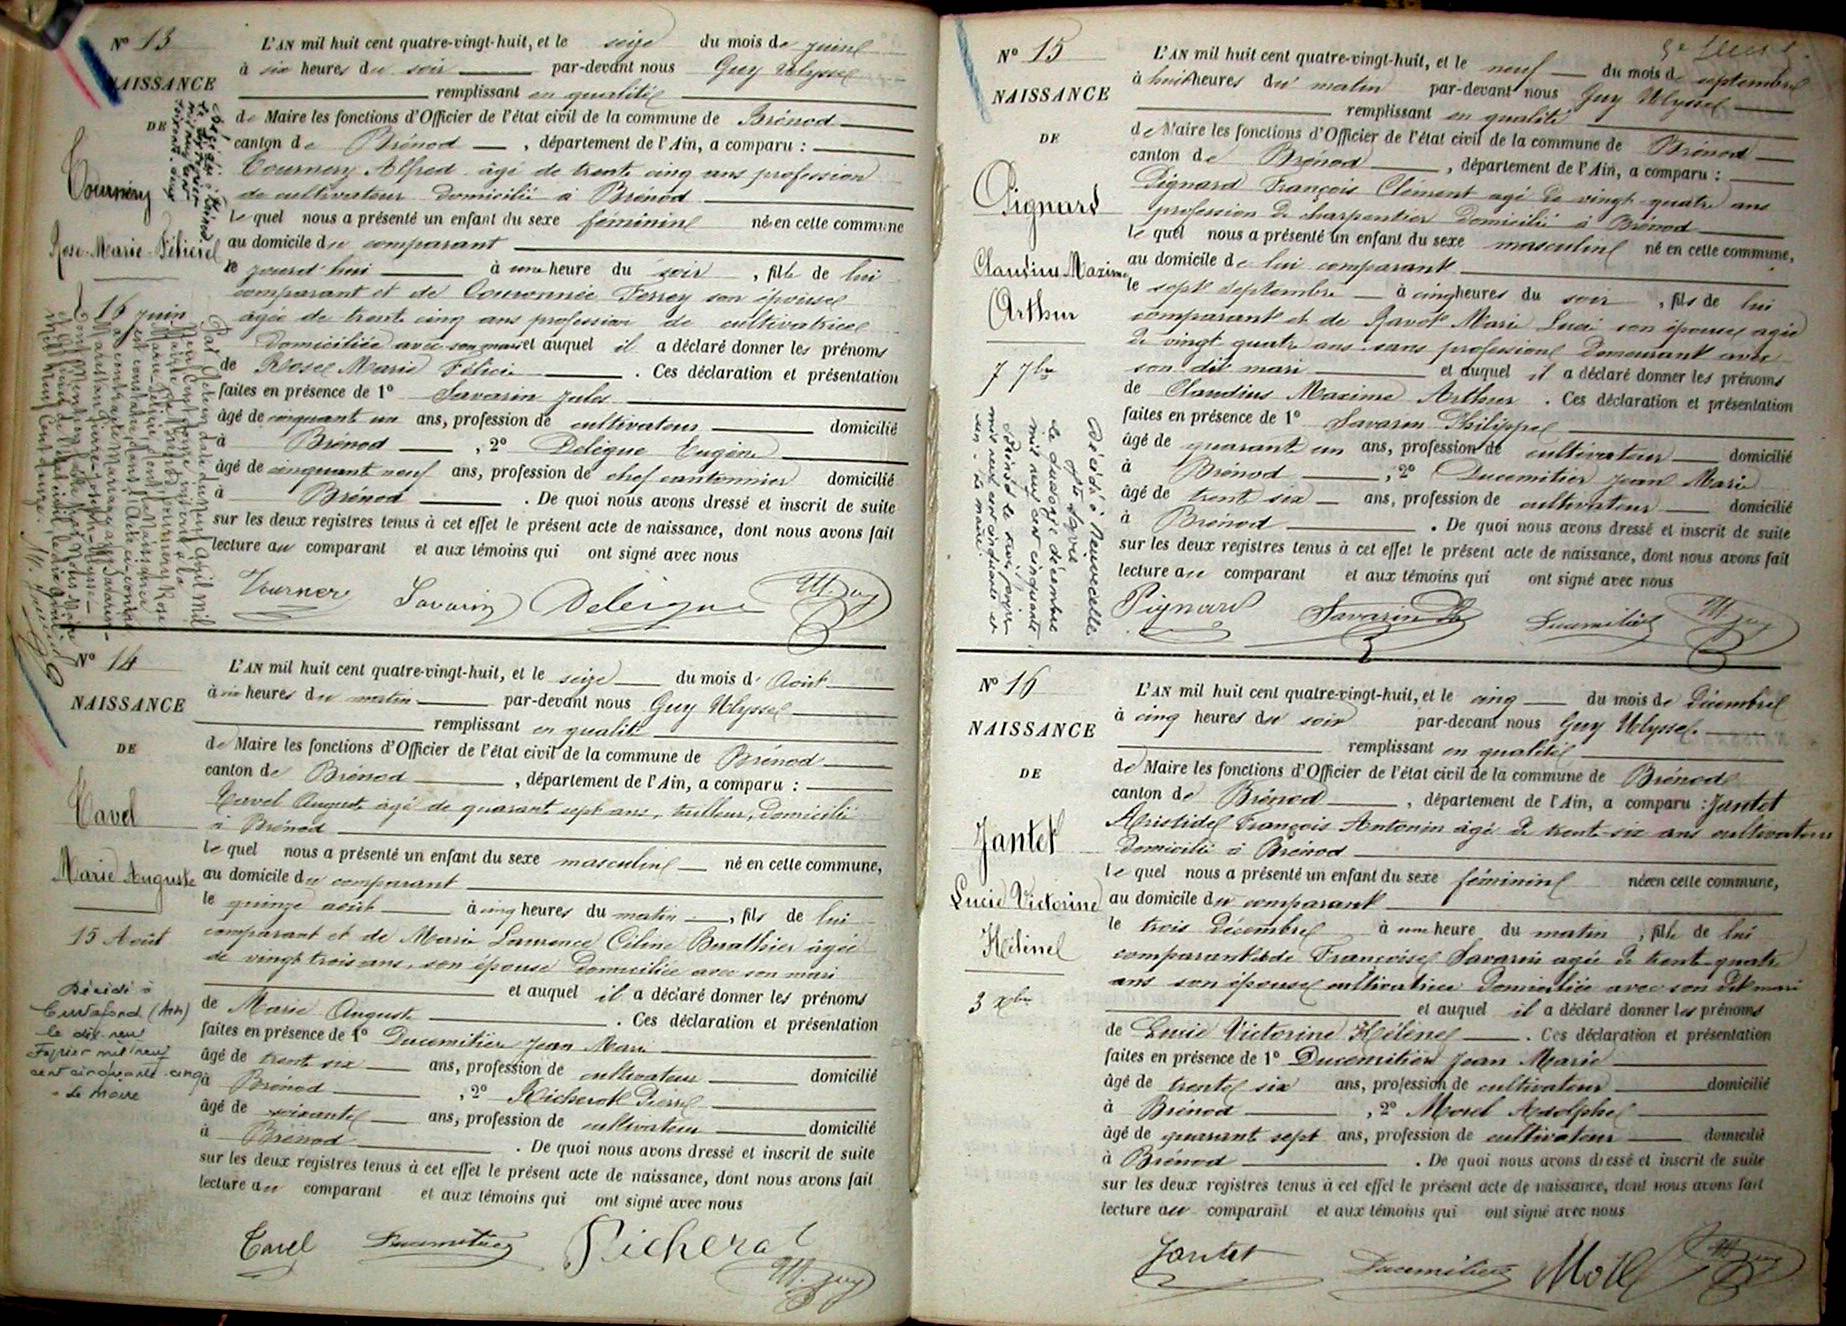 N° 13
NAISSANCE
DE
Tournery
Rose-Marie-Félicie
16 juin
L'AN mil huit cent quatre-vingt-huit, et le seize du mois de juin
à six heures du soir par-devant nous Guy Ulysse
remplissant en qualité
de Maire les fonctions d'Officier de l'état civil de la commune de Brénod
canton de Brénod, département de l'Ain, a comparu :
Tournery Alfred âgé de trente cinq ans profession
de cultivateur domicilié à Brénod
lequel nous a présenté un enfant du sexe féminin né en cette commune
au domicile du comparant
le jourd'hui à une heure du soir, fille de lui
comparant et de Couronnée Ferrey son épouse
âgée de trente cinq ans profession de cultivatrice
domiciliée avec son mari et auquel il a déclaré donner les prénoms
de Rose Marie Félicie. Ces déclaration et présentation
faites en présence de 1° Savarin Jules
âgé de cinquant un ans, profession de cultivateur domicilié
à Brénod, 2° Deleigue Eugène
âgé de cinquant neuf ans, profession de chef cantonnier domicilié
à Brénod. De quoi nous avons dressé et inscrit de suite
sur les deux registres tenus à cet effet le présent acte de naissance, dont nous avons fait
lecture au comparant et aux témoins qui ont signé avec nous
Tournery Savarin Deleigue U. Guy
N° 14
NAISSANCE
DE
Tavel
Marie Auguste
15 Août
Décidé à
Curtafond (Ain)
le dix-neuf
Février mil neuf
cent cinquante-cinq
Le Maire
L'AN mil huit cent quatre-vingt-huit, et le seize du mois d'Août
à six heures du matin par-devant nous Guy Ulysse
remplissant en qualité
de Maire les fonctions d'Officier de l'état civil de la commune de Brénod
canton de Brénod, département de l'Ain, a comparu :
Tavel August âgé de quarant sept ans, tailleur, domicilié
à Brénod
lequel nous a présenté un enfant du sexe masculin né en cette commune,
au domicile du comparant
le quinze août à cinq heures du matin, fils de lui
comparant et de Marie Laurence Céline Buathier âgée
de vingt trois ans, son épouse domiciliée avec son mari
et auquel il a déclaré donner les prénoms
de Marie August. Ces déclaration et présentation
faites en présence de 1° Ducemitier Jean Marie
âgé de trent six ans, profession de cultivateur domicilié
à Brénod, 2° Richerot Pierre
âgé de soixante ans, profession de cultivateur domicilié
à Brénod. De quoi nous avons dressé et inscrit de suite
sur les deux registres tenus à cet effet le présent acte de naissance, dont nous avons fait
lecture au comparant et aux témoins qui ont signé avec nous
Tavel Ducemitier Richerot U. Guy
N° 15
NAISSANCE
DE
Pignard
Claudius Maxime
Arthur
7 7bre
Décédé à Neuvecelle
Hte Savoie
le duesage décembre
mil neuf cent cinquante
L'AN mil huit cent quatre-vingt-huit, et le neuf du mois de septembre
à huit heures du matin par-devant nous Guy Ulysse
remplissant en qualité
de Maire les fonctions d'Officier de l'état civil de la commune de Brénod
canton de Brénod, département de l'Ain, a comparu :
Pignard François Clément agé de vingt-quatre ans
profession de charpentier domicilié à Brénod
lequel nous a présenté un enfant du sexe masculin né en cette commune,
au domicile de lui comparant
le sept septembre à cinq heures du soir, fils de lui
comparant et de Ravot Marie Luci son épouse agée
de vingt quatre ans sans profession demeurant avec
son dit mari et auquel il a déclaré donner les prénoms
de Claudius Maxime Arthur. Ces déclaration et présentation
faites en présence de 1° Savarin Philippe
âgé de quarant un ans, profession de cultivateur domicilié
à Brénod, 2° Ducemitier Jean Marie
âgé de trent six ans, profession de cultivateur domicilié
à Brénod. De quoi nous avons dressé et inscrit de suite
sur les deux registres tenus à cet effet le présent acte de naissance, dont nous avons fait
lecture au comparant et aux témoins qui ont signé avec nous
Pignard Savarin Ph Ducemitier U. Guy
N° 16
NAISSANCE
DE
Jantet
Lucie Victorine
Hélène
3 Xbre
L'AN mil huit cent quatre-vingt-huit, et le cinq du mois de Décembre
à cinq heures du soir par-devant nous Guy Ulysse
remplissant en qualité
de Maire les fonctions d'Officier de l'état civil de la commune de Brénod
canton de Brénod, département de l'Ain, a comparu : Jantet
Aristide François Antonin âgé de trente-six ans cultivateur
domicilié à Brénod
lequel nous a présenté un enfant du sexe féminin née en cette commune,
au domicile du comparant
le trois Décembre à une heure du matin, fille de lui
comparant et de Françoise Savarin agée de trente-quatre
ans son épouse cultivatrice domiciliée avec son dit mari
et auquel il a déclaré donner les prénoms
de Lucie Victorine Hélène. Ces déclaration et présentation
faites en présence de 1° Ducemitier Jean Marie
âgé de trente six ans, profession de cultivateur domicilié
à Brénod, 2° Morel Adolphe
âgé de quarant sept ans, profession de cultivateur domicilié
à Brénod. De quoi nous avons dressé et inscrit de suite
sur les deux registres tenus à cet effet le présent acte de naissance, dont nous avons fait
lecture au comparant et aux témoins qui ont signé avec nous
Jantet Ducemitier Morel U. Guy